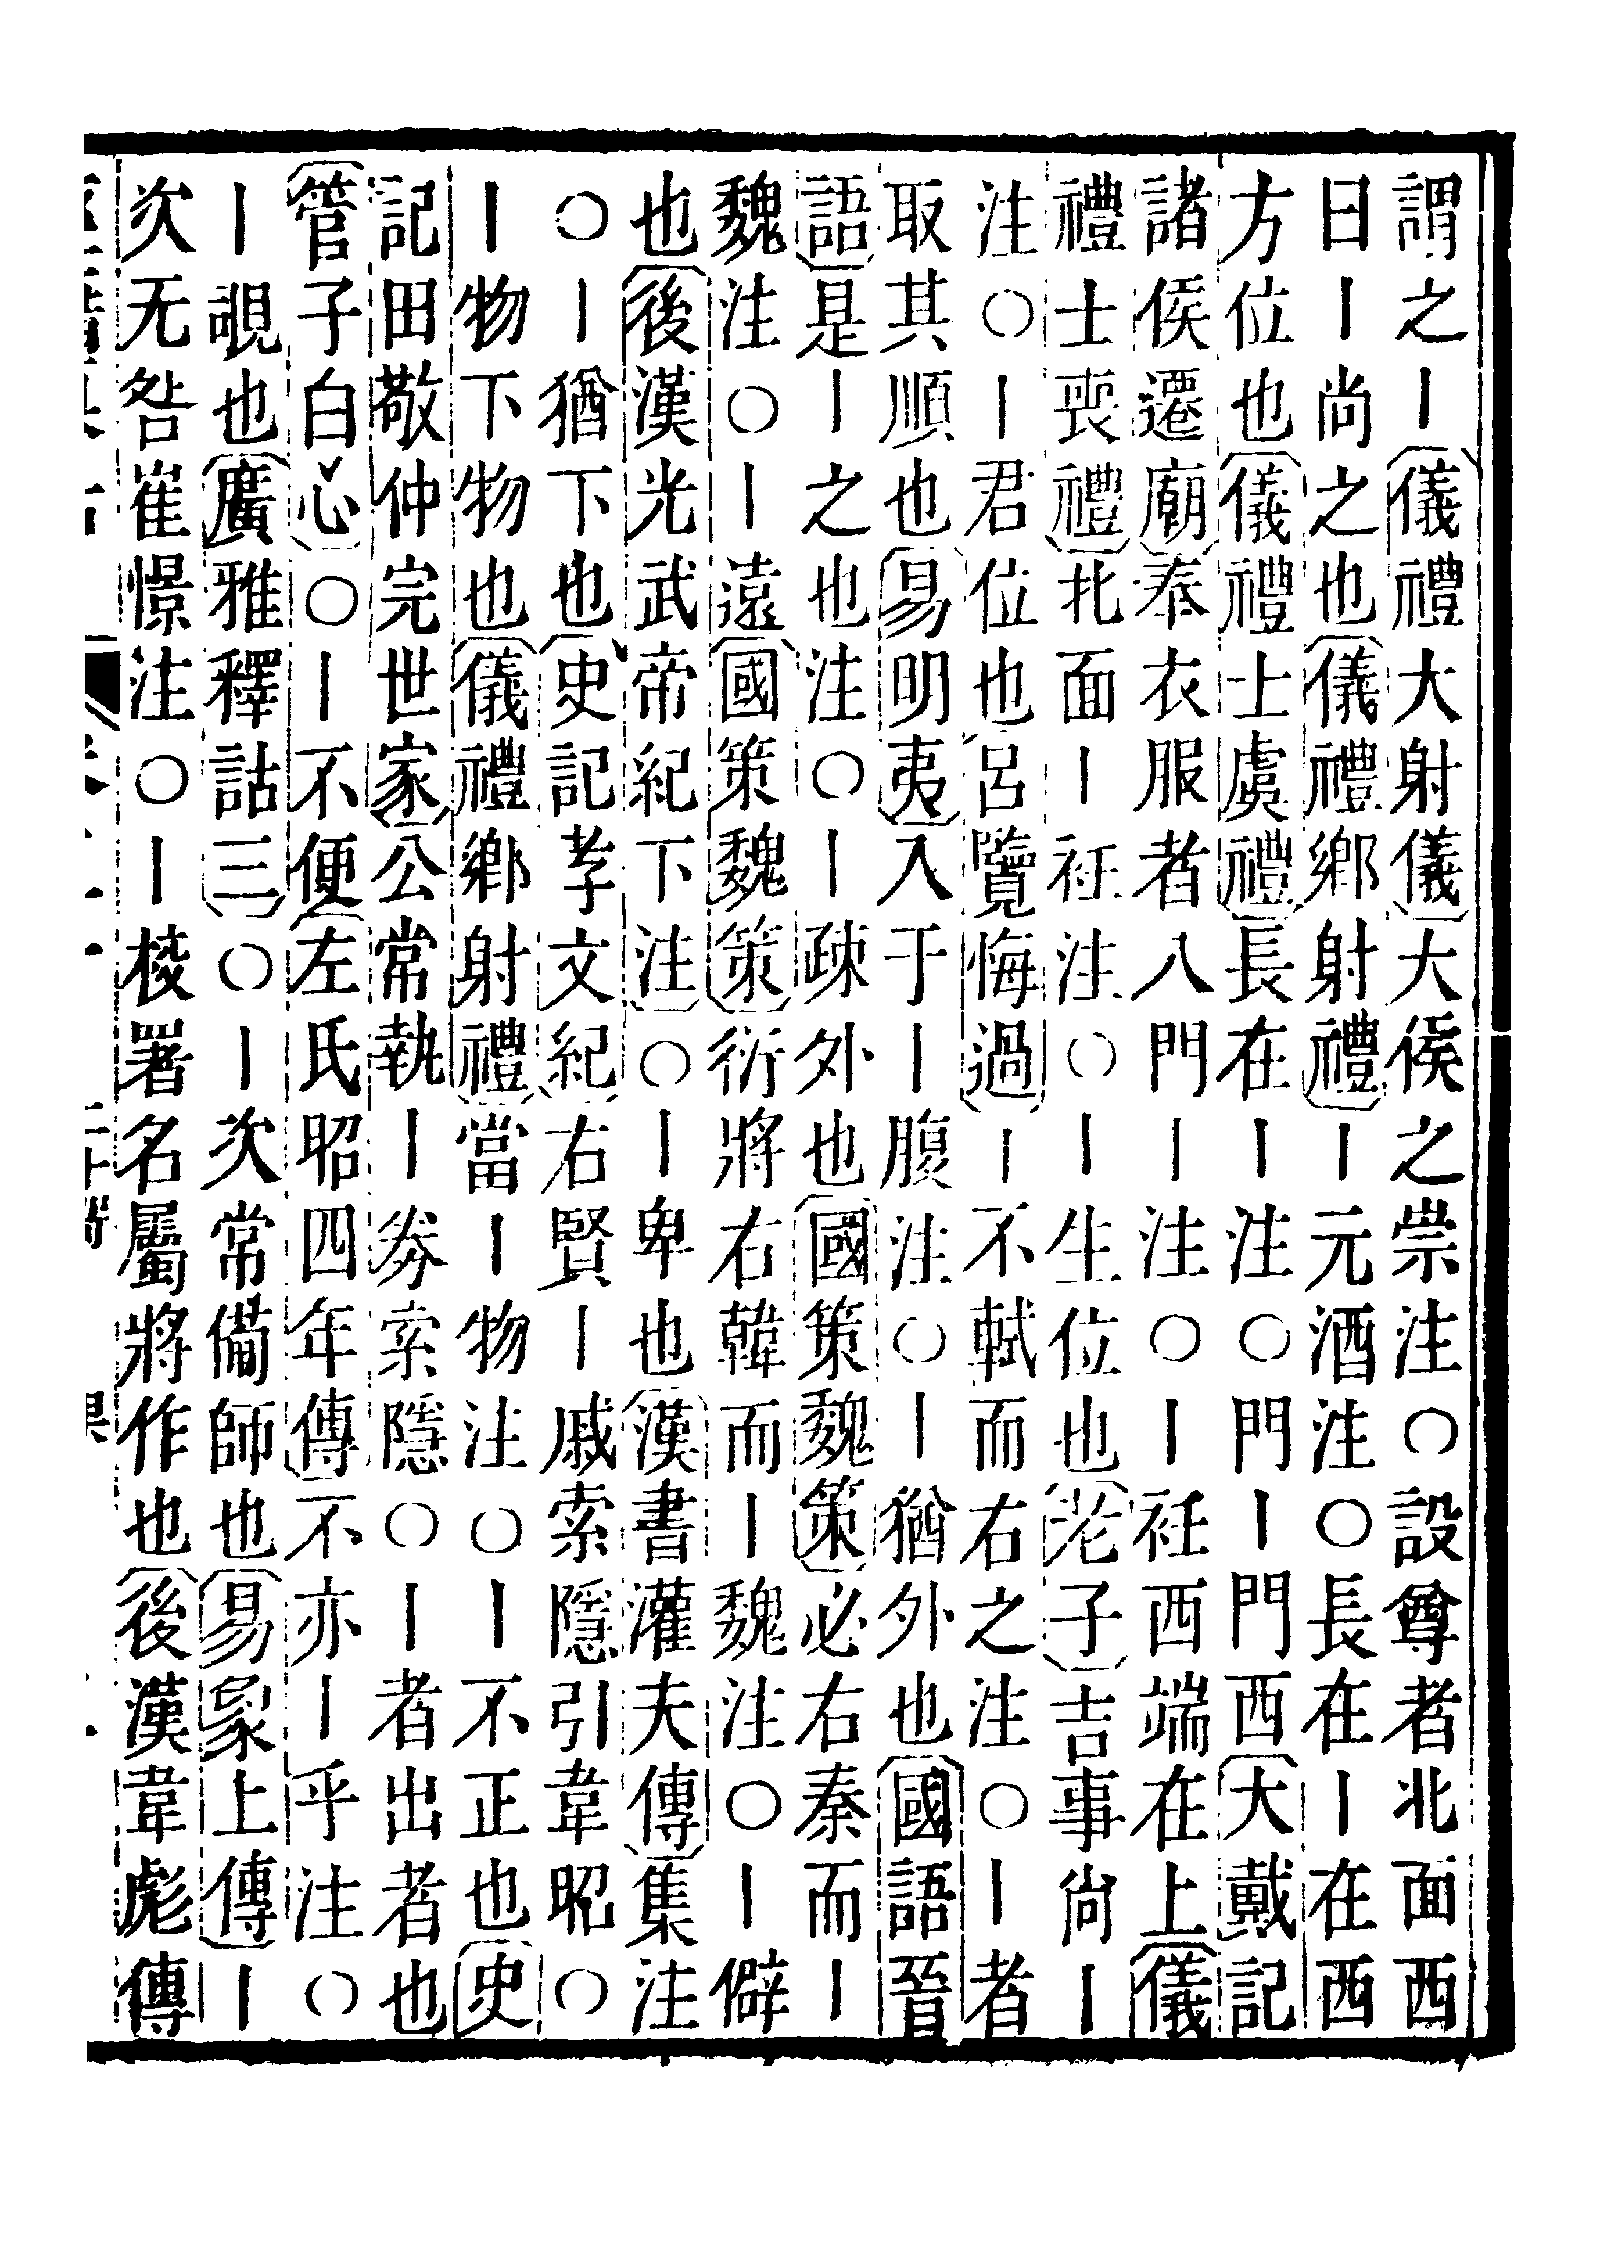 謂之｜儀禮大射儀大侯之崇注〇設尊者北面西
日｜尚之也儀禮鄉射禮｜元酒注〇長在｜在西
方位也儀禮士虞禮長在｜注〇門｜門西大戴記
諸侯遷廟奉衣服者入門｜注〇｜衽西端在上儀
禮士喪禮北面｜衽注〇｜生位也老子吉事尚｜
注〇｜君位也呂覽悔過｜不軾而右之注〇｜者
取其順也易明夷入于｜腹注〇｜猶外也國語晉
語是｜之也注〇｜疎外也國策魏策必右秦而｜
魏注〇｜遠國策魏策衍將右韓而｜魏注〇｜僻
也後漢光武帝紀下注〇｜卑也漢書灌夫傳集注
〇｜猶下也史記孝文紀右賢｜戚索隱引韋昭〇
｜物下物也儀禮鄉射禮當｜物注〇｜不正也史
記田敬仲完世家公常執｜劵索隱〇｜者出者也
管子白心〇｜不便左氏昭四年傳不亦｜乎注〇
｜覗也廣雅釋詁三〇｜次常備師也易象上傳｜
次无咎崔憬注〇｜校署名屬將作也後漢韋彪傳